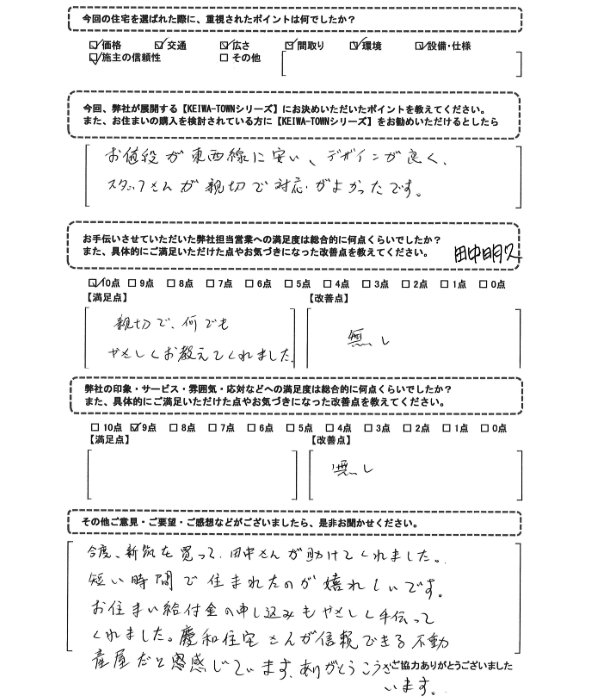 今回の住宅を選ばれた際に、重視されたポイントは何でしたか？
☑価格 ☑交通 ☑広さ ☑間取り ☑環境 ☑設備・仕様
☑施主の信頼性 □その他
今回、弊社が展開する【KEIWA-TOWNシリーズ】にお決めいただいたポイントを教えてください。
また、お住まいの購入を検討されている方に【KEIWA-TOWNシリーズ】をお勧めいただけるとしたら
お値段が東西線に安い、デザインが良く、
スタッフさんが親切で対応がよかったです。
お手伝いさせていただいた弊社担当営業への満足度は総合的に何点くらいでしたか？
また、具体的にご満足いただけた点やお気づきになった改善点を教えてください。
田中明久
☑10点 □9点 □8点 □7点 □6点 □5点 □4点 □3点 □2点 □1点 □0点
【満足点】 【改善点】
親切で、何でも
やさしくお教えてくれました。
無し
弊社の印象・サービス・雰囲気・応対などへの満足度は総合的に何点くらいですか？
また、具体的にご満足いただけた点やお気づきになった改善点を教えてください。
□10点 ☑9点 □8点 □7点 □6点 □5点 □4点 □3点 □2点 □1点 □0点
【満足点】 【改善点】
無し
その他ご意見・ご要望・ご感想などがございましたら、是非お聞かせください。
今度、新築を買って、田中さんが助けてくれました。
短い時間で住まれたのが嬉れしいです。
お住まい給付金の申し込みもやさしく手伝って
くれました。慶和住宅さんが信頼できる不動
産屋だと感じています、ありがとうござ
います。
ご協力ありがとうございました